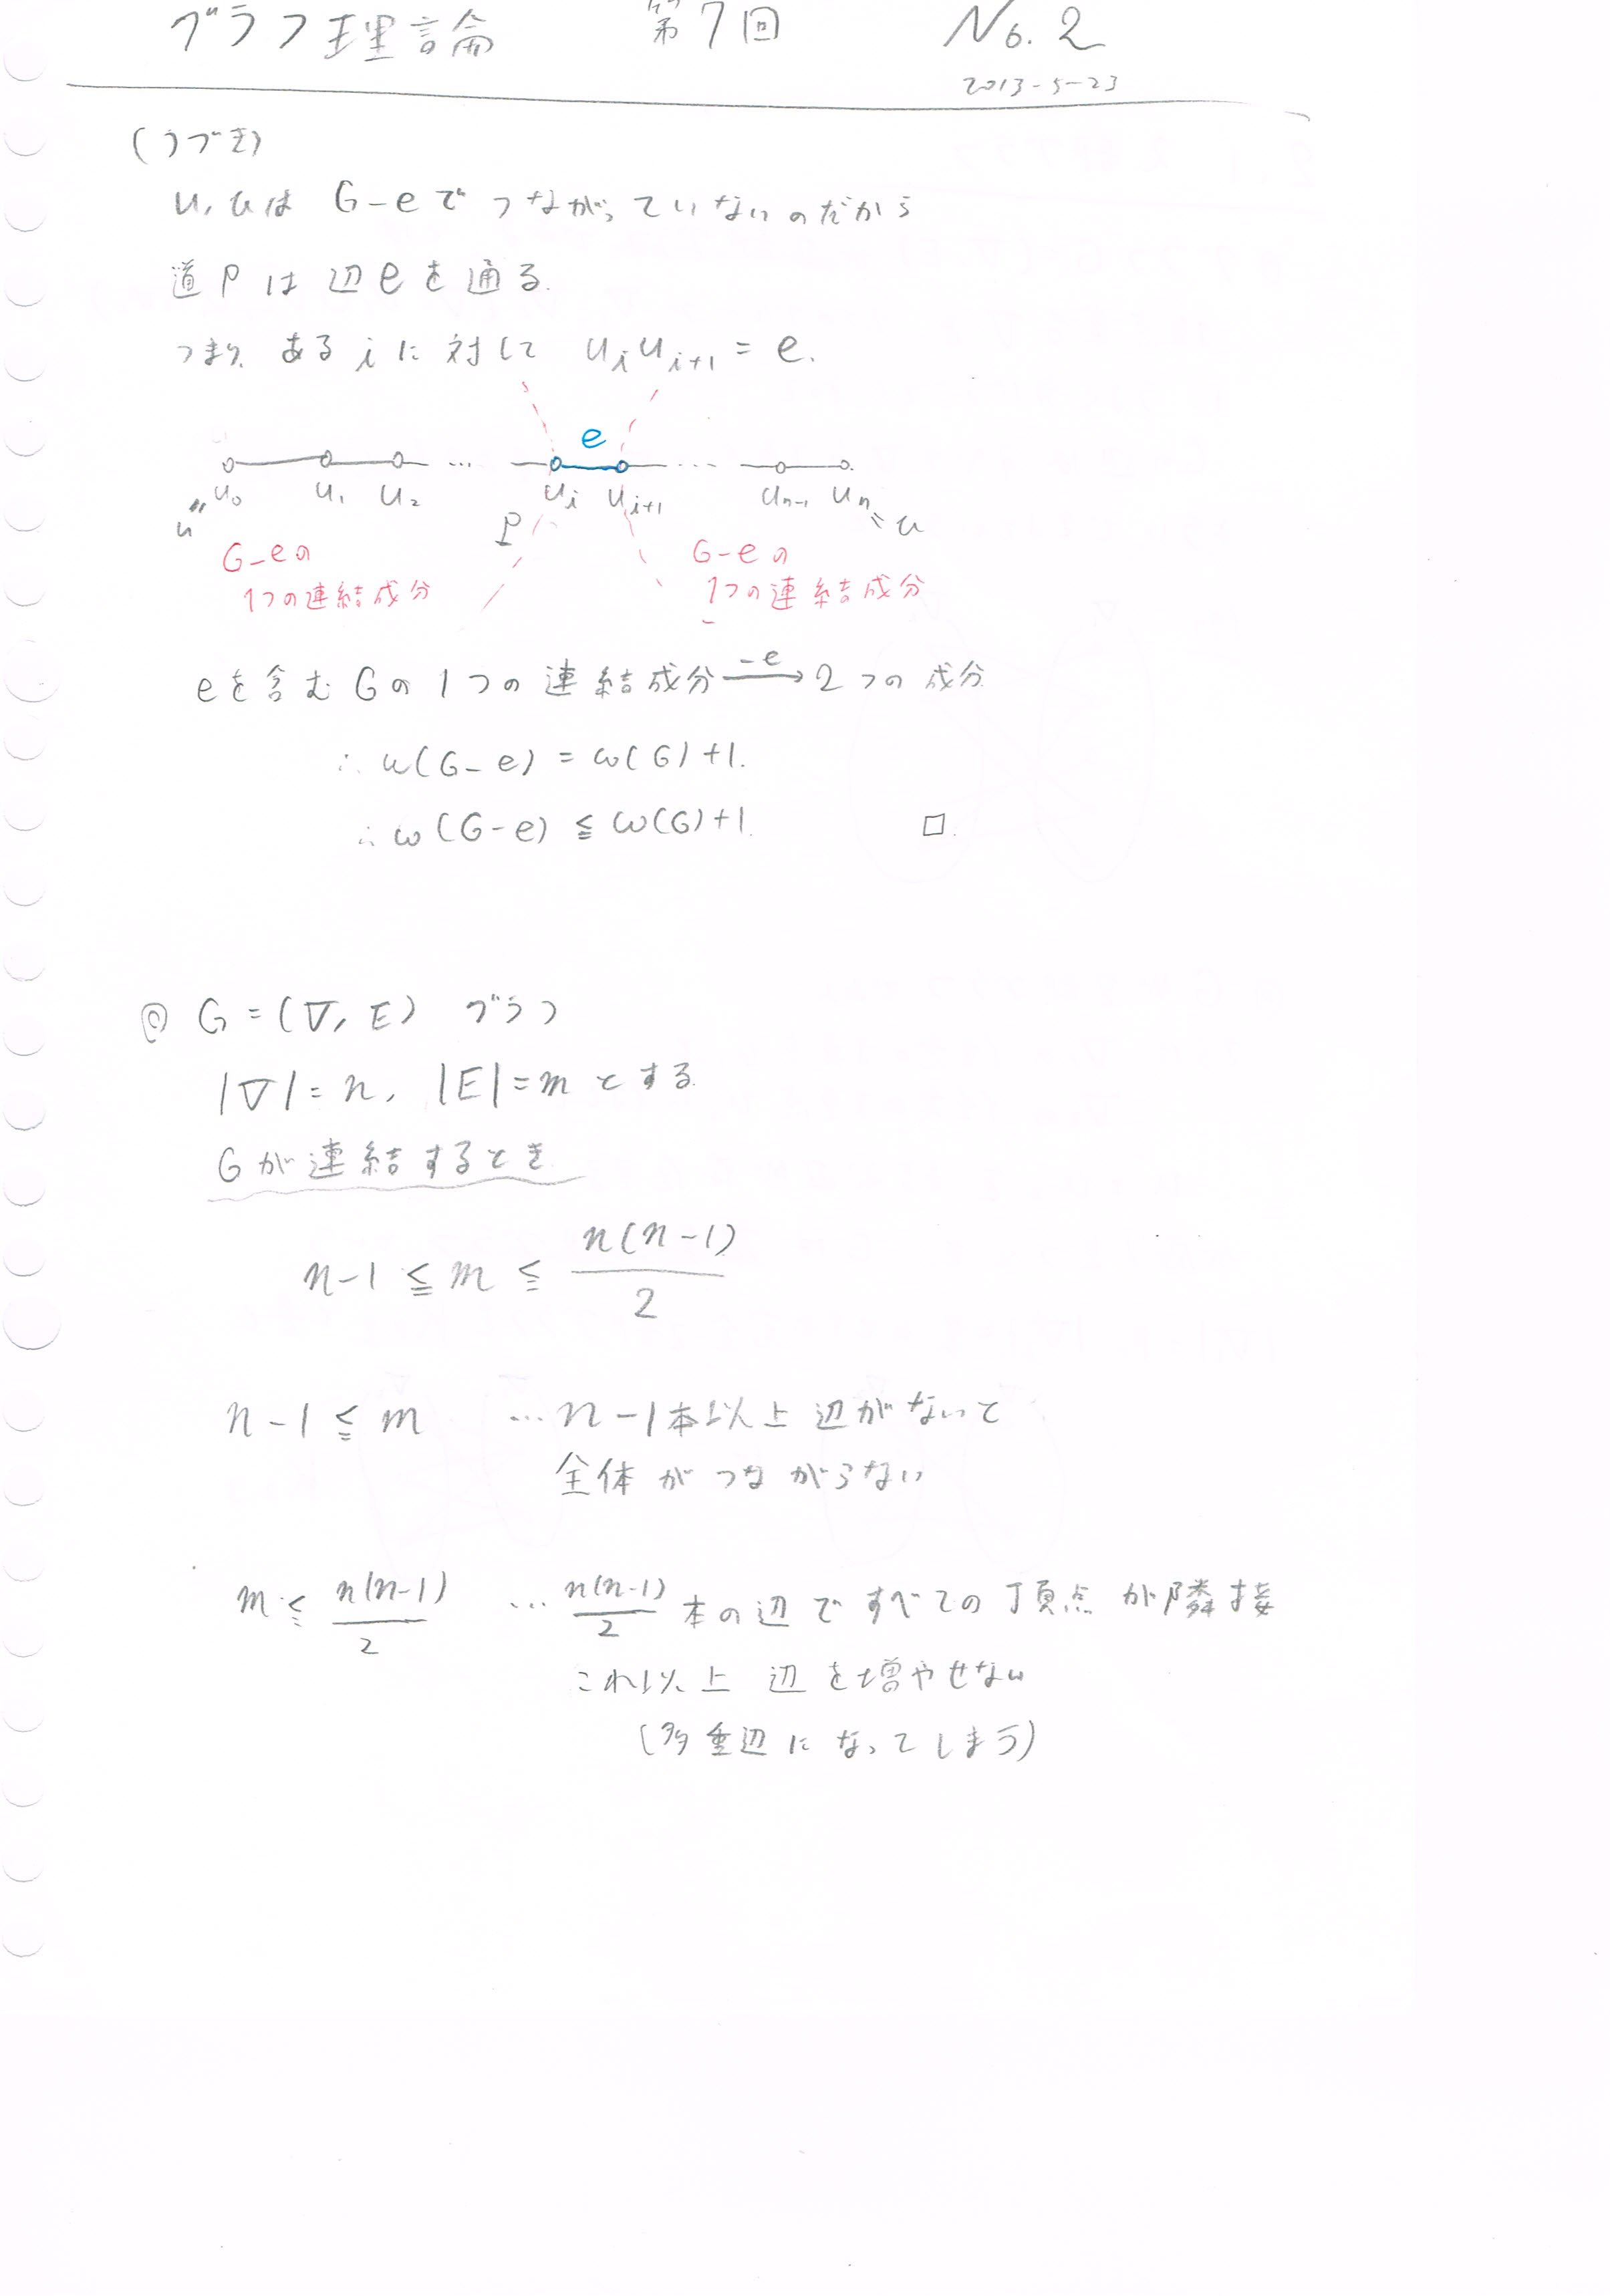 グラフ理論 第7回 No.2
2013-5-23
(つづき)
u, vは G-eで つながっていないのだから
道Pは 辺eを通る.
つまり, ある iに対して u_i u_{i+1} = e.
e
u_0 u_1 u_2 … u_i u_{i+1} … u_{n-1} u_n
u = v
P
G-eの
1つの連結成分
G-eの
1つの連結成分
eを含む Gの1つの連結成分 -e→ 2つの成分
∴ ω(G-e) = ω(G)+1.
∴ ω(G-e) ≦ ω(G)+1. □.
◎ G=(V, E) グラフ
|V|=n, |E|=m とする
Gが連結するとき
n-1 ≦ m ≦ n(n-1)/2
n-1 ≦ m …n-1本以上辺がないと
全体がつながらない
m ≦ n(n-1)/2 … n(n-1)/2 本の辺ですべての頂点が隣接
これ以上 辺を増やせない
(多重辺になってしまう)